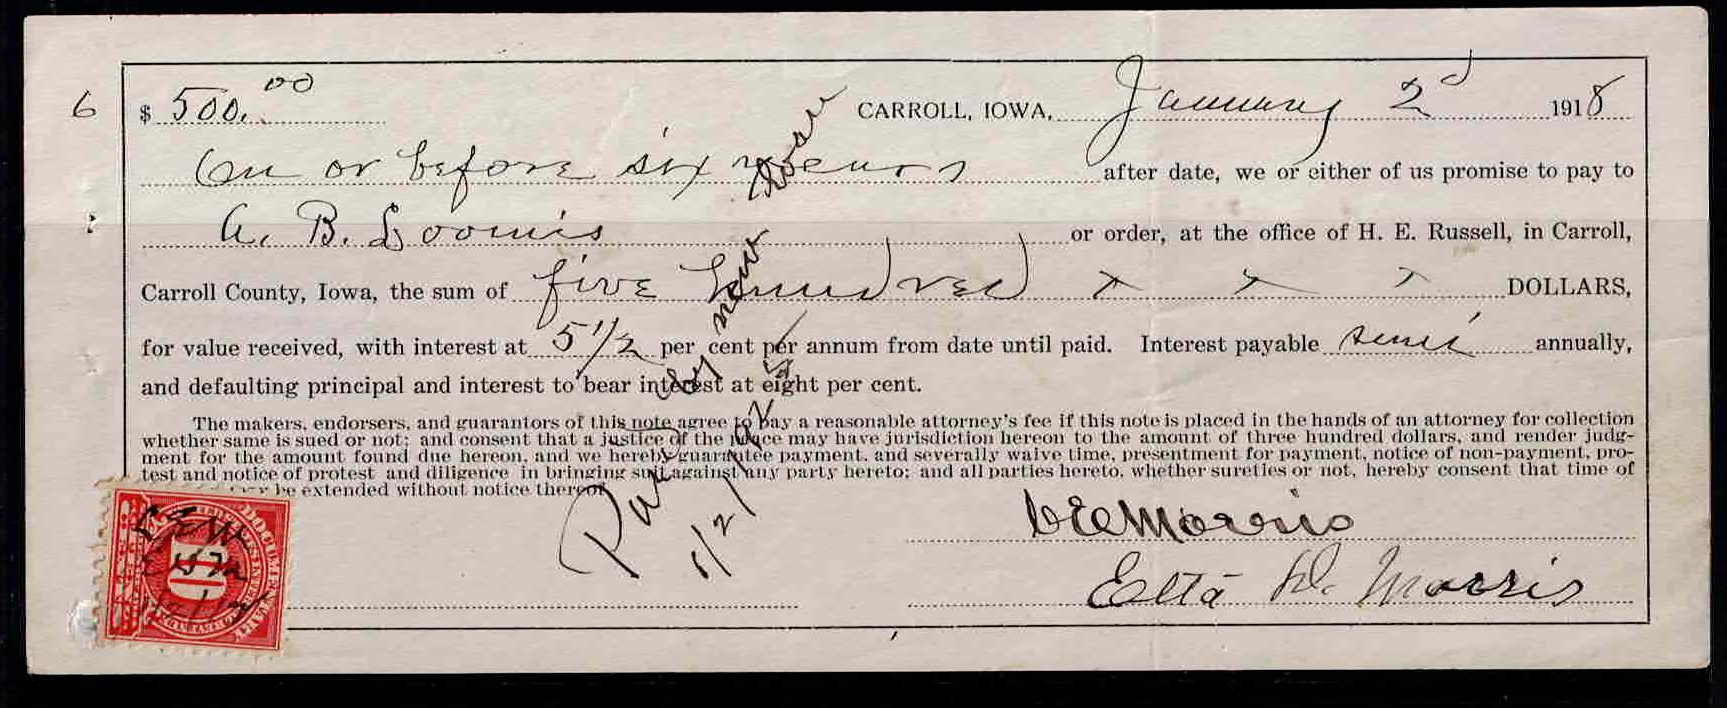 6
$ 500.00 CARROLL, IOWA, January 2d 1918
On or before six years after date, we or either of us promise to pay to
A. B. Loomis or order, at the office of H. E. Russell, in Carroll,
Carroll County, Iowa, the sum of five hundred x x x DOLLARS,
for value received, with interest at 5 1/2 per cent per annum from date until paid. Interest payable semi annually,
and defaulting principal and interest to bear interest at eight per cent.
The makers, endorsers, and guarantors of this note agree to pay a reasonable attorney's fee if this note is placed in the hands of an attorney for collection
whether same is sued or not; and consent that a justice of the peace may have jurisdiction hereon to the amount of three hundred dollars, and render judg-
ment for the amount found due hereon, and we hereby guarantee payment, and severally waive time, presentment for payment, notice of non-payment, pro-
test and notice of protest and diligence in bringing suit against any party hereto; and all parties hereto, whether sureties or not, hereby consent that time of
be extended without notice thereof
C E Morris
Etta D. Morris
by new
DOCUMENTARY
10